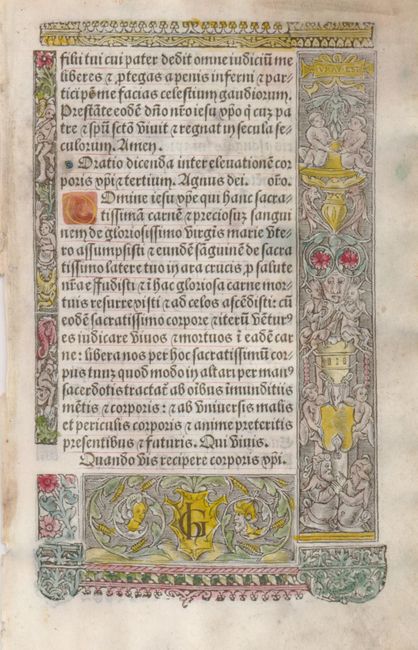 filii tui cui pater dedit omne iudiciū me
liberes ⁊ ꝓtegas a penis inferni ⁊ par-
ticipē me facias celestium gaudiorum.
Prestāte eodē dn̄o nr̄o iesu xp̄o q̇ cuʒ pa
tre ⁊ spū sctō viuit ⁊ regnat in secula se-
culorum. Amen.
Oratio dicenda inter eleuationē cor
poris xp̄i ⁊ tertium. Agnus dei. or̄o.
Domine iesu xp̄e qui hanc sacra-
tissimā carnē ⁊ preciosuʒ sangui
nem de gloriosissimo virgīs marie vte-
ro assumpsisti ⁊ eundē sāguinē de sacra
tissimo latere tuo in ara crucis ꝓ salute
nr̄a effudisti ⁊ ī hac gloriosa carne mor-
tuis resurrexisti ⁊ ad celos ascēdisti: cū
eodē sacratissimo corpore ⁊ iterū vētur⁹
es iudicare viuos ⁊ mortuos ī eadē car-
ne: libera nos per hoc sacratissimū cor-
pus tuuʒ quod modo in altari per man⁹
sacerdotis tractat̄ ab oībus īmunditiis
mētis ⁊ corporis: ⁊ ab vniuersis malis
et periculis corporis ⁊ anime preteritis
presentibus ⁊ futuris. Qui viuis.
Quando vis recipere corporis xp̄i.
GH